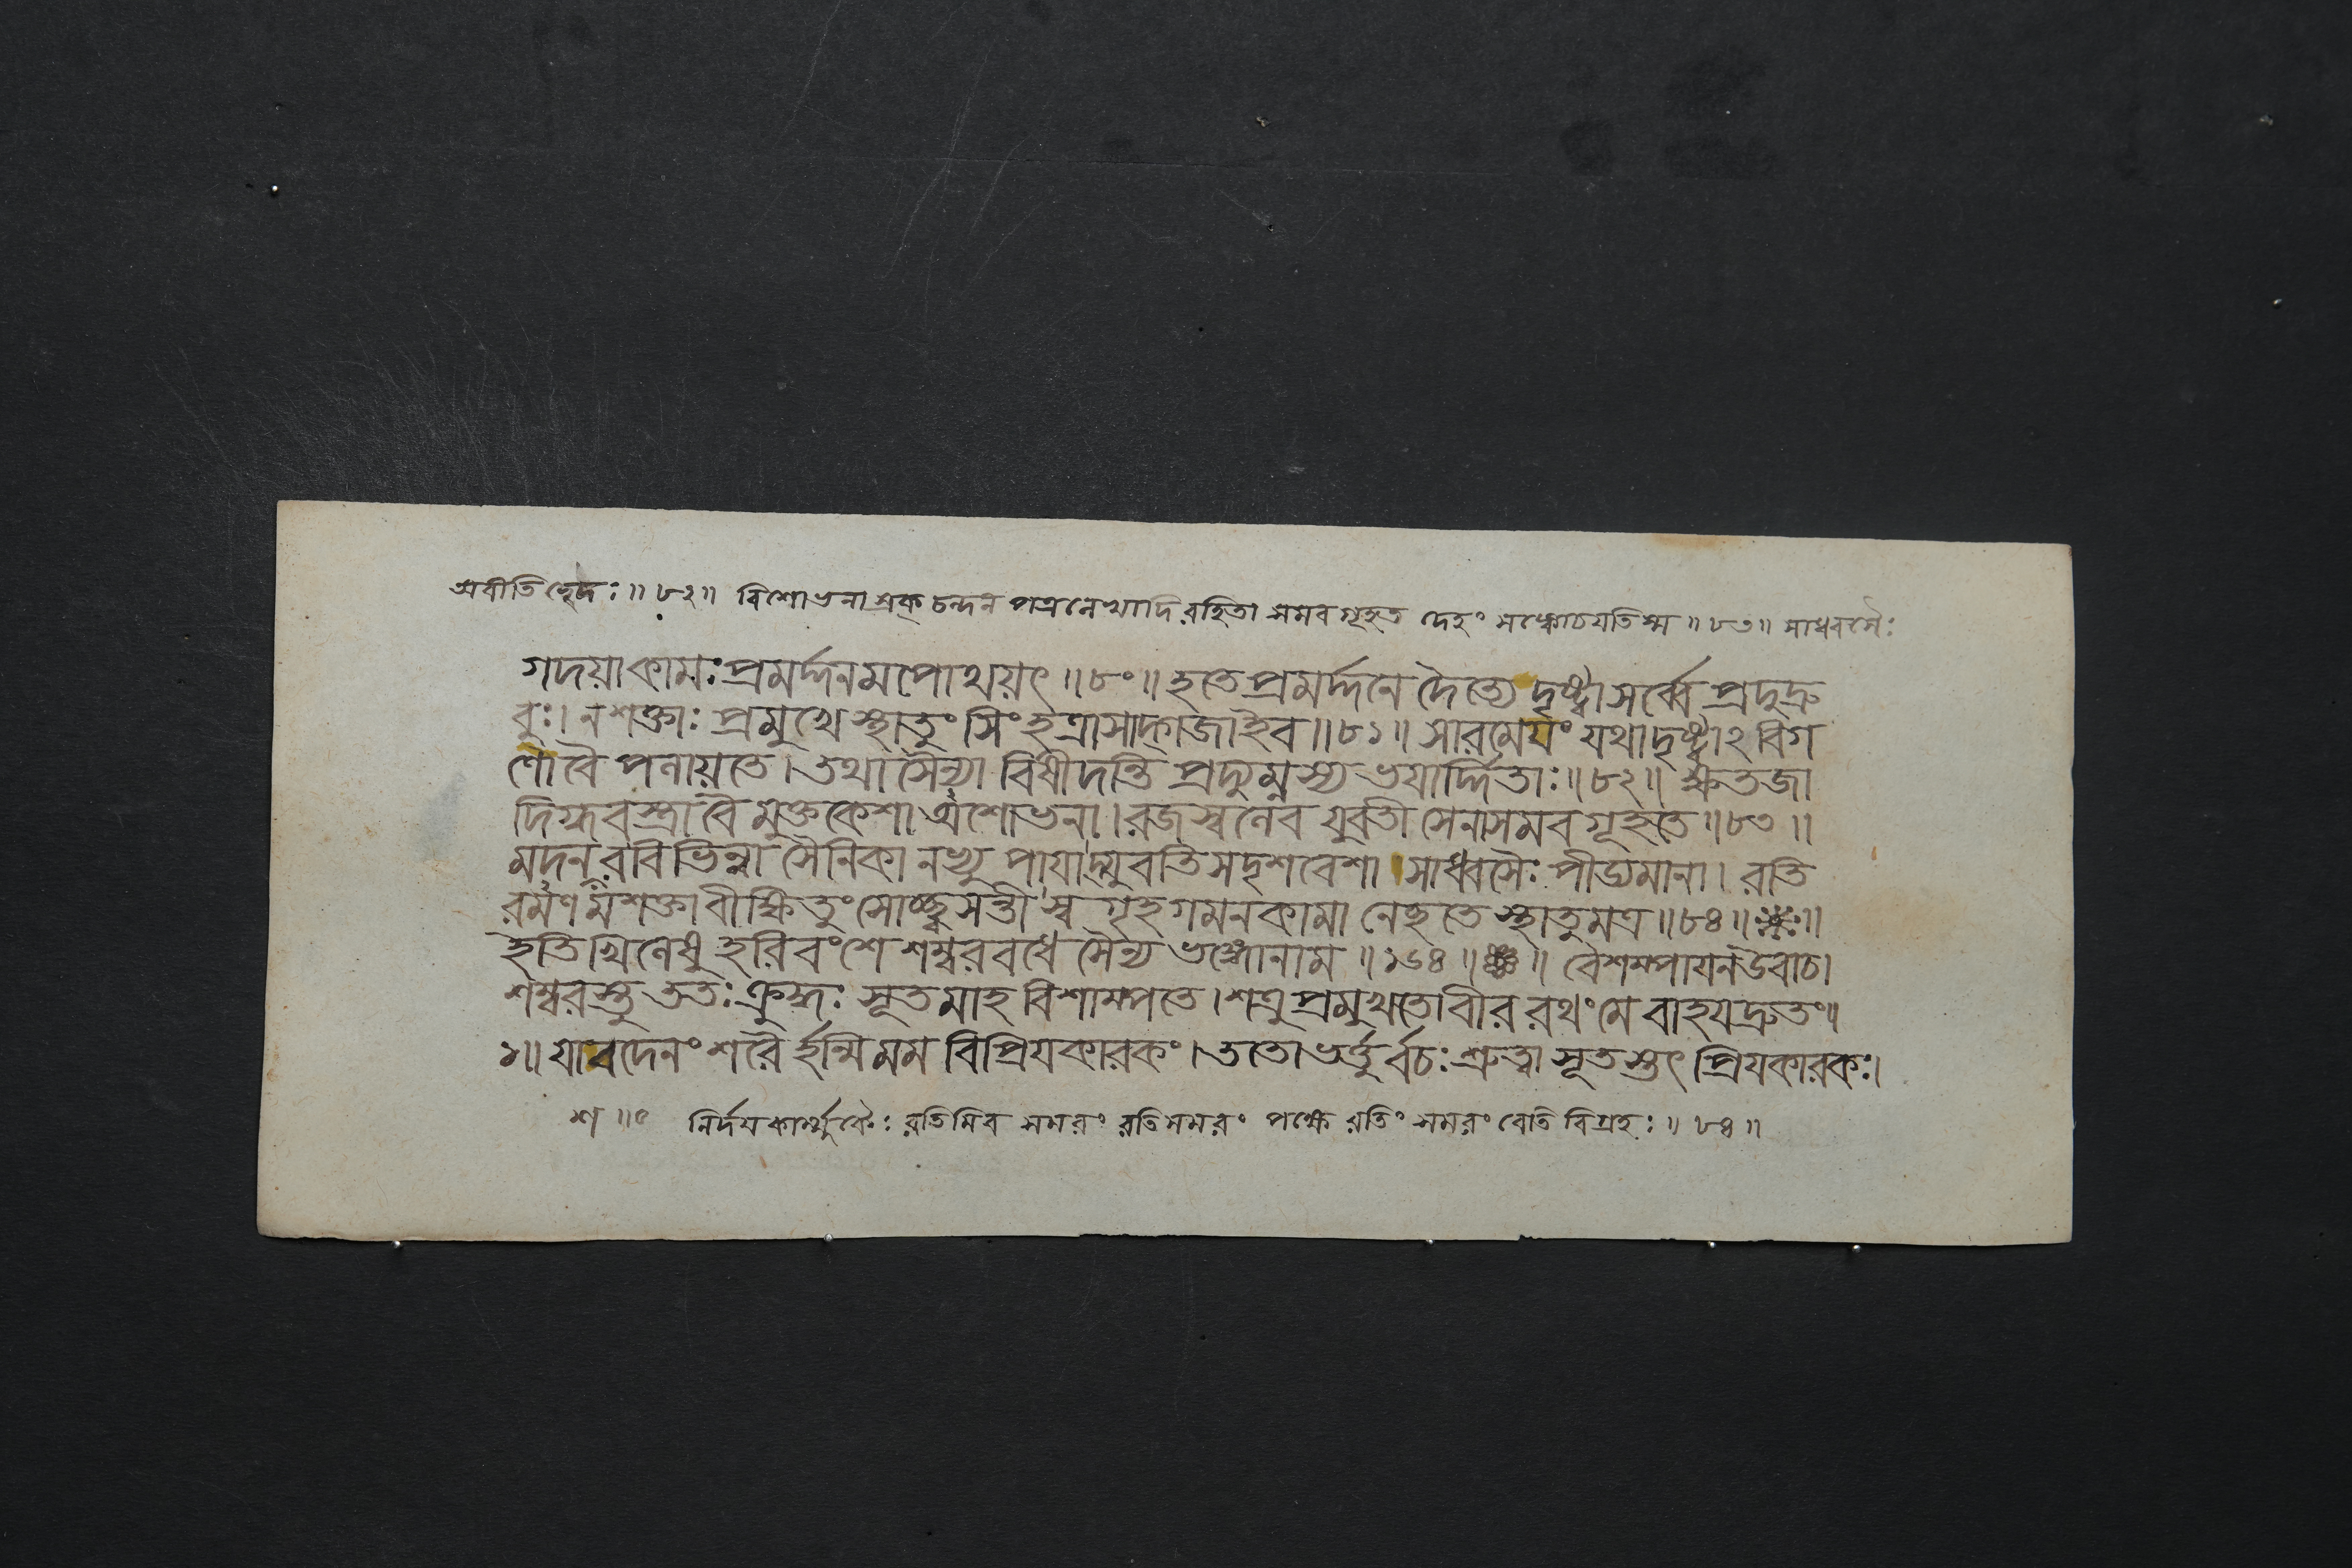 অবীতিহৃদঃ ॥ ৮২ ॥ বিশোভনা স্রক্ চন্দন পত্রলেখাদি রহিতা সমবগূহত দেহং সঙ্কোচয়তিস্ম ॥ ৮৩ ॥ সাধ্বসৈঃ
গদয়া কামঃ প্রমর্দ্দনমপোথয়ৎ ॥ ৮০ ॥ হতে প্রমর্দ্দনে দৈত্যে দৃষ্ট্বা সর্ব্বে প্রদুদ্রু
বুঃ। ন শক্তাঃ প্রমুখে স্থাতুং সিংহত্রাসাদ্গজাইব ॥ ৮১ ॥ সারমেয়ং যথা দৃষ্ট্বাঽবিগ
ণো বৈ পলায়তে। তথা সৈন্যা বিষীদন্তি প্রদ্যুম্নস্য ভয়ার্দ্দিতাঃ ॥ ৮২ ॥ ক্ষতজা
দিগ্ধবস্ত্রা বৈ মুক্তকেশা অশোভনা। রজস্বলেব যুবতী সেনা সমবগূহতে ॥ ৮৩ ॥
মদনশরবিভিন্না সৈনিকানভ্যুপায়াদ্যুবতিসদৃশবেশা সাধ্বসৈঃ পীড্যমানা। রতি
রমণমশক্তা বীক্ষিতুং সোচ্ছ্বসন্তী স্বগৃহগমনকামা নেহতে স্থাতুমত্র ॥ ৮৪ ॥
ইতি খিলেষু হরিবংশে শম্বরবধে সৈন্যভঙ্গোনাম ॥ ১৬৪ ॥ বৈশম্পায়ন উবাচ।
শম্বরস্তু ততঃ ক্রুদ্ধঃ সূতমাহ বিশাম্পতে। শত্রুপ্রমুখতো বীর রথং মে বাহয় দ্রুতং ॥
১ ॥ যাবদেনং শরৈর্হন্মি মম বিপ্রিয়কারকং। ততো ভর্ত্তুর্ব্বচঃ শ্রুত্বা সূতস্তৎ প্রিয়কারকঃ।
নির্দয়কার্ম্মুকৈঃ রতিমিব সমরং রতিসমরং পক্ষে রতিং সমরং বেতি বিগ্রহঃ ॥ ৮৪ ॥